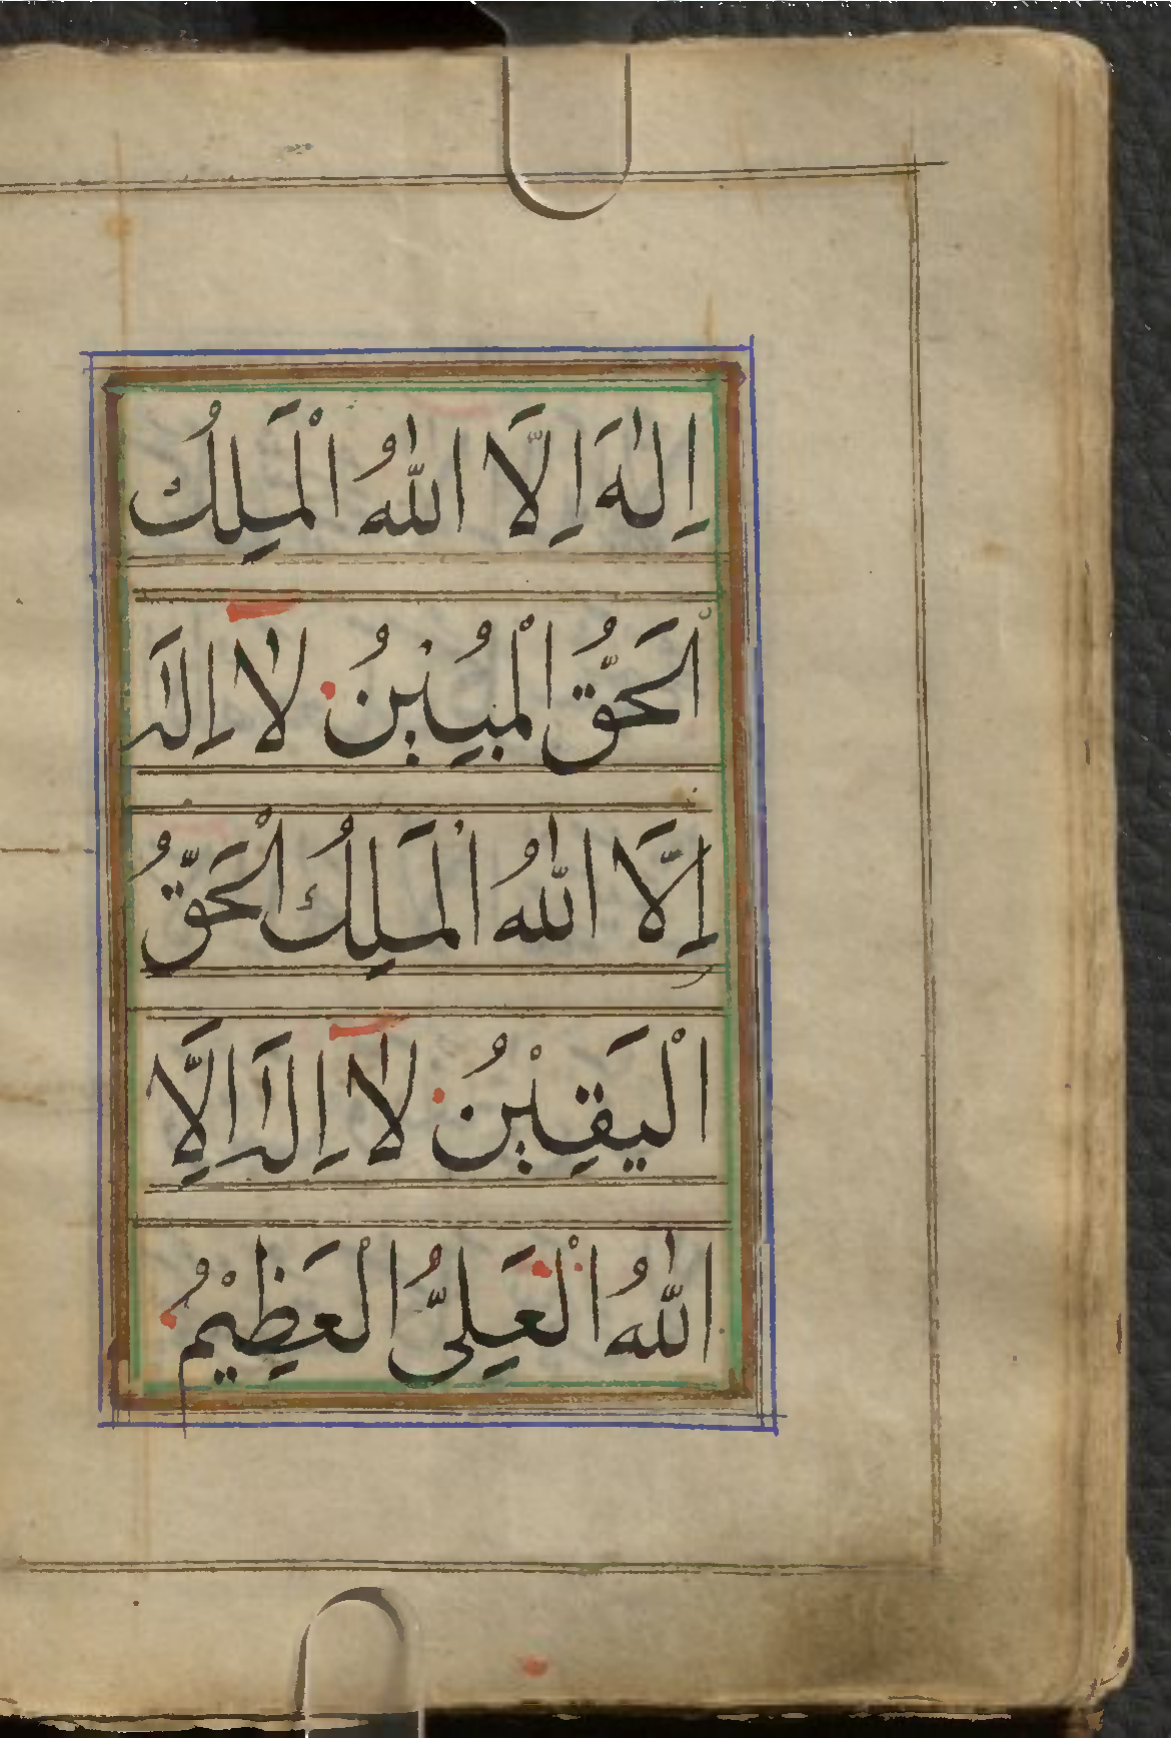 اِلٰهَ اِلَّا اللّٰهُ الْمَلِكُ
الْحَقُّ الْمُبِيْنُ لَا اِلٰهَ
اِلَّا اللّٰهُ الْمَلِكُ الْحَقُّ
الْيَقِيْنُ لَا اِلٰهَ اِلَّا
اللّٰهُ الْعَلِىُّ الْعَظِيْمُ